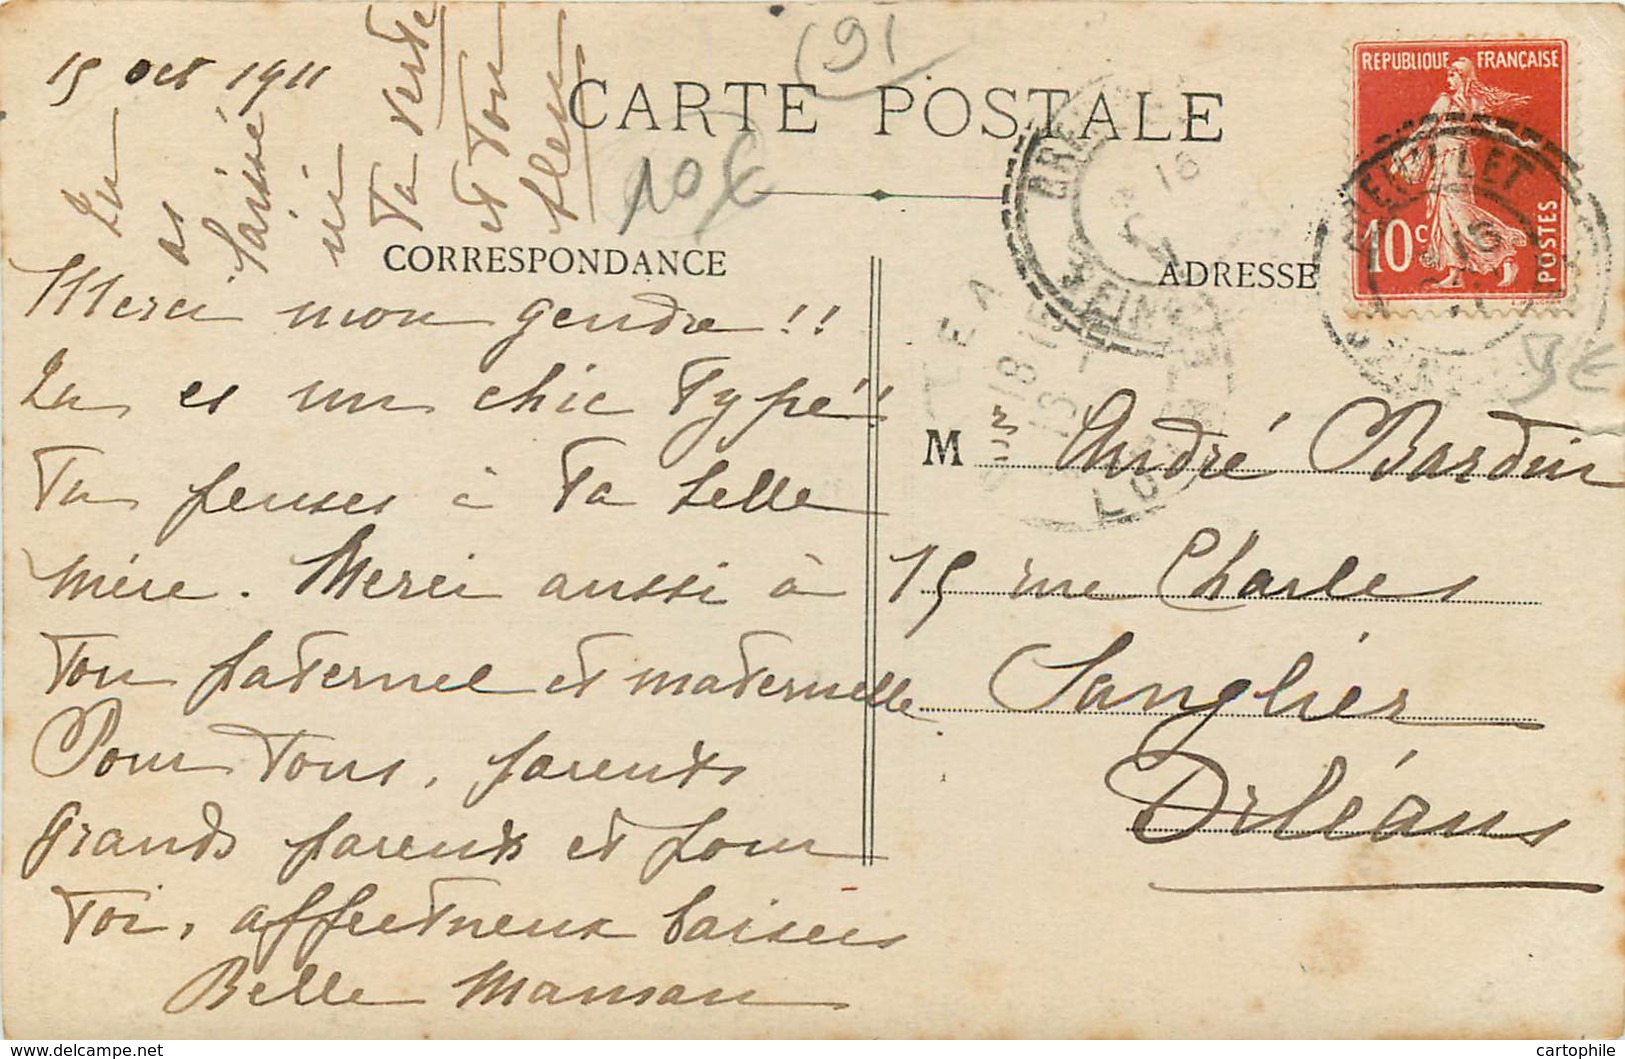 15 Oct 1911
CARTE POSTALE
CORRESPONDANCE
ADRESSE
REPUBLIQUE FRANÇAISE
10c
POSTES
(91
10 €
Tu
as
laissé
ici
Ta verte
et Ton
bleu
Merci mon gendre !!
Tu es un chic Type !!
Tu penses à Ta belle
mère. Merci aussi à
Ton paternel et maternelle
Pour Tous, parents
grands parents et pour
Toi, affectueux baisers
Belle Maman
M André Bardin
15 rue Charles
Sanglier
Orléans
BREUILLET
16
18
LOIRET
cartophile